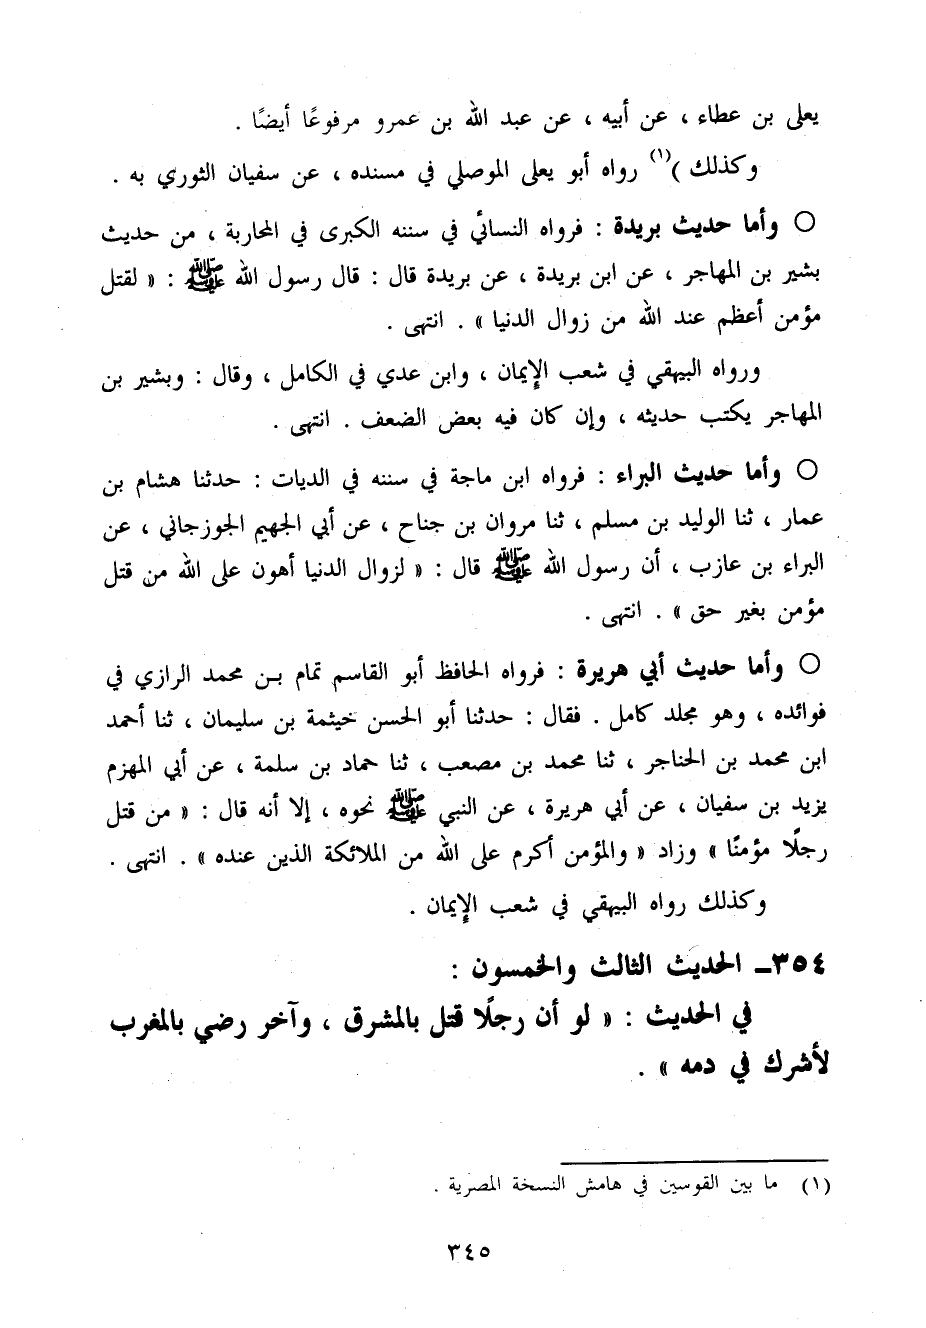 يعلى بن عطاء ، عن أبيه ، عن عبد الله بن عمرو مرفوعًا أيضًا .
وكذلك )(١) رواه أبو يعلى الموصلي في مسنده ، عن سفيان الثوري به .
○ وأما حديث بريدة : فرواه النسائي في سننه الكبرى في المحاربة ، من حديث
بشير بن المهاجر ، عن ابن بريدة ، عن بريدة قال : قال رسول الله ﷺ : « لقتل
مؤمن أعظم عند الله من زوال الدنيا » . انتهى .
ورواه البيهقي في شعب الإيمان ، وابن عدي في الكامل ، وقال : وبشير بن
المهاجر يكتب حديثه ، وإن كان فيه بعض الضعف . انتهى .
○ وأما حديث البراء : فرواه ابن ماجة في سننه في الديات : حدثنا هشام بن
عمار ، ثنا الوليد بن مسلم ، ثنا مروان بن جناح ، عن أبي الجهيم الجوزجاني ، عن
البراء بن عازب ، أن رسول الله ﷺ قال : « لزوال الدنيا أهون على الله من قتل
مؤمن بغير حق » . انتهى .
○ وأما حديث أبي هريرة : فرواه الحافظ أبو القاسم تمام بـن محمد الرازي في
فوائده ، وهو مجلد كامل . فقال : حدثنا أبو الحسن خيثمة بن سليمان ، ثنا أحمد
ابن محمد بن الحناجر ، ثنا محمد بن مصعب ، ثنا حماد بن سلمة ، عن أبي المهزم
يزيد بن سفيان ، عن أبي هريرة ، عن النبي ﷺ نحوه ، إلا أنه قال : « من قتل
رجلًا مؤمنًا » وزاد « والمؤمن أكرم على الله من الملائكة الذين عنده » . انتهى .
وكذلك رواه البيهقي في شعب الإيمان .
٣٥٤ـ الحديث الثالث والخمسون :
في الحديث : « لو أن رجلًا قتل بالمشرق ، وآخر رضي بالمغرب
لأشرك في دمه » .
(١) ما بين القوسين في هامش النسخة المصرية .
٣٤٥